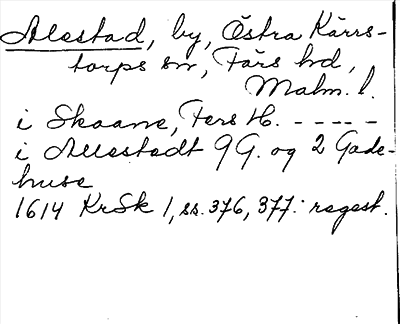 Alestad, by, Östra Kärrs-
torps sn, Färs hd,
Malm. l.
i Skaane, Fers H. - - - - -
i Allestadt 9 G. og 2 Gade-
huse
1614 KrSk 1, ss. 376, 377: regest.